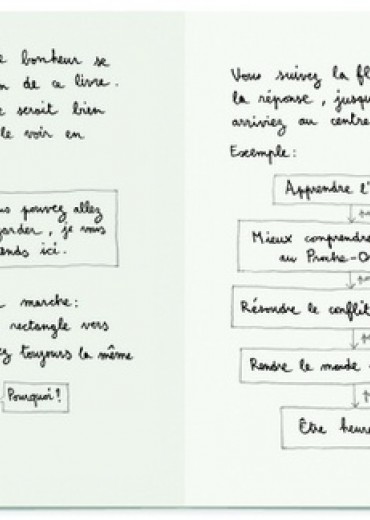 e bonheur se
n de ce livre.
e seroit bien
le voir en
us pouvez allez
garder, je vous
ends ici.
marche:
rectangle vers
ez toujours la même
Pourquoi?
Vous suivez la fl
la réponse, jusqu
arriviez au centre
Exemple:
Apprendre l'
Mieux comprendre
au Proche-O
Résoudre le conflit
Rendre le monde
Être heure